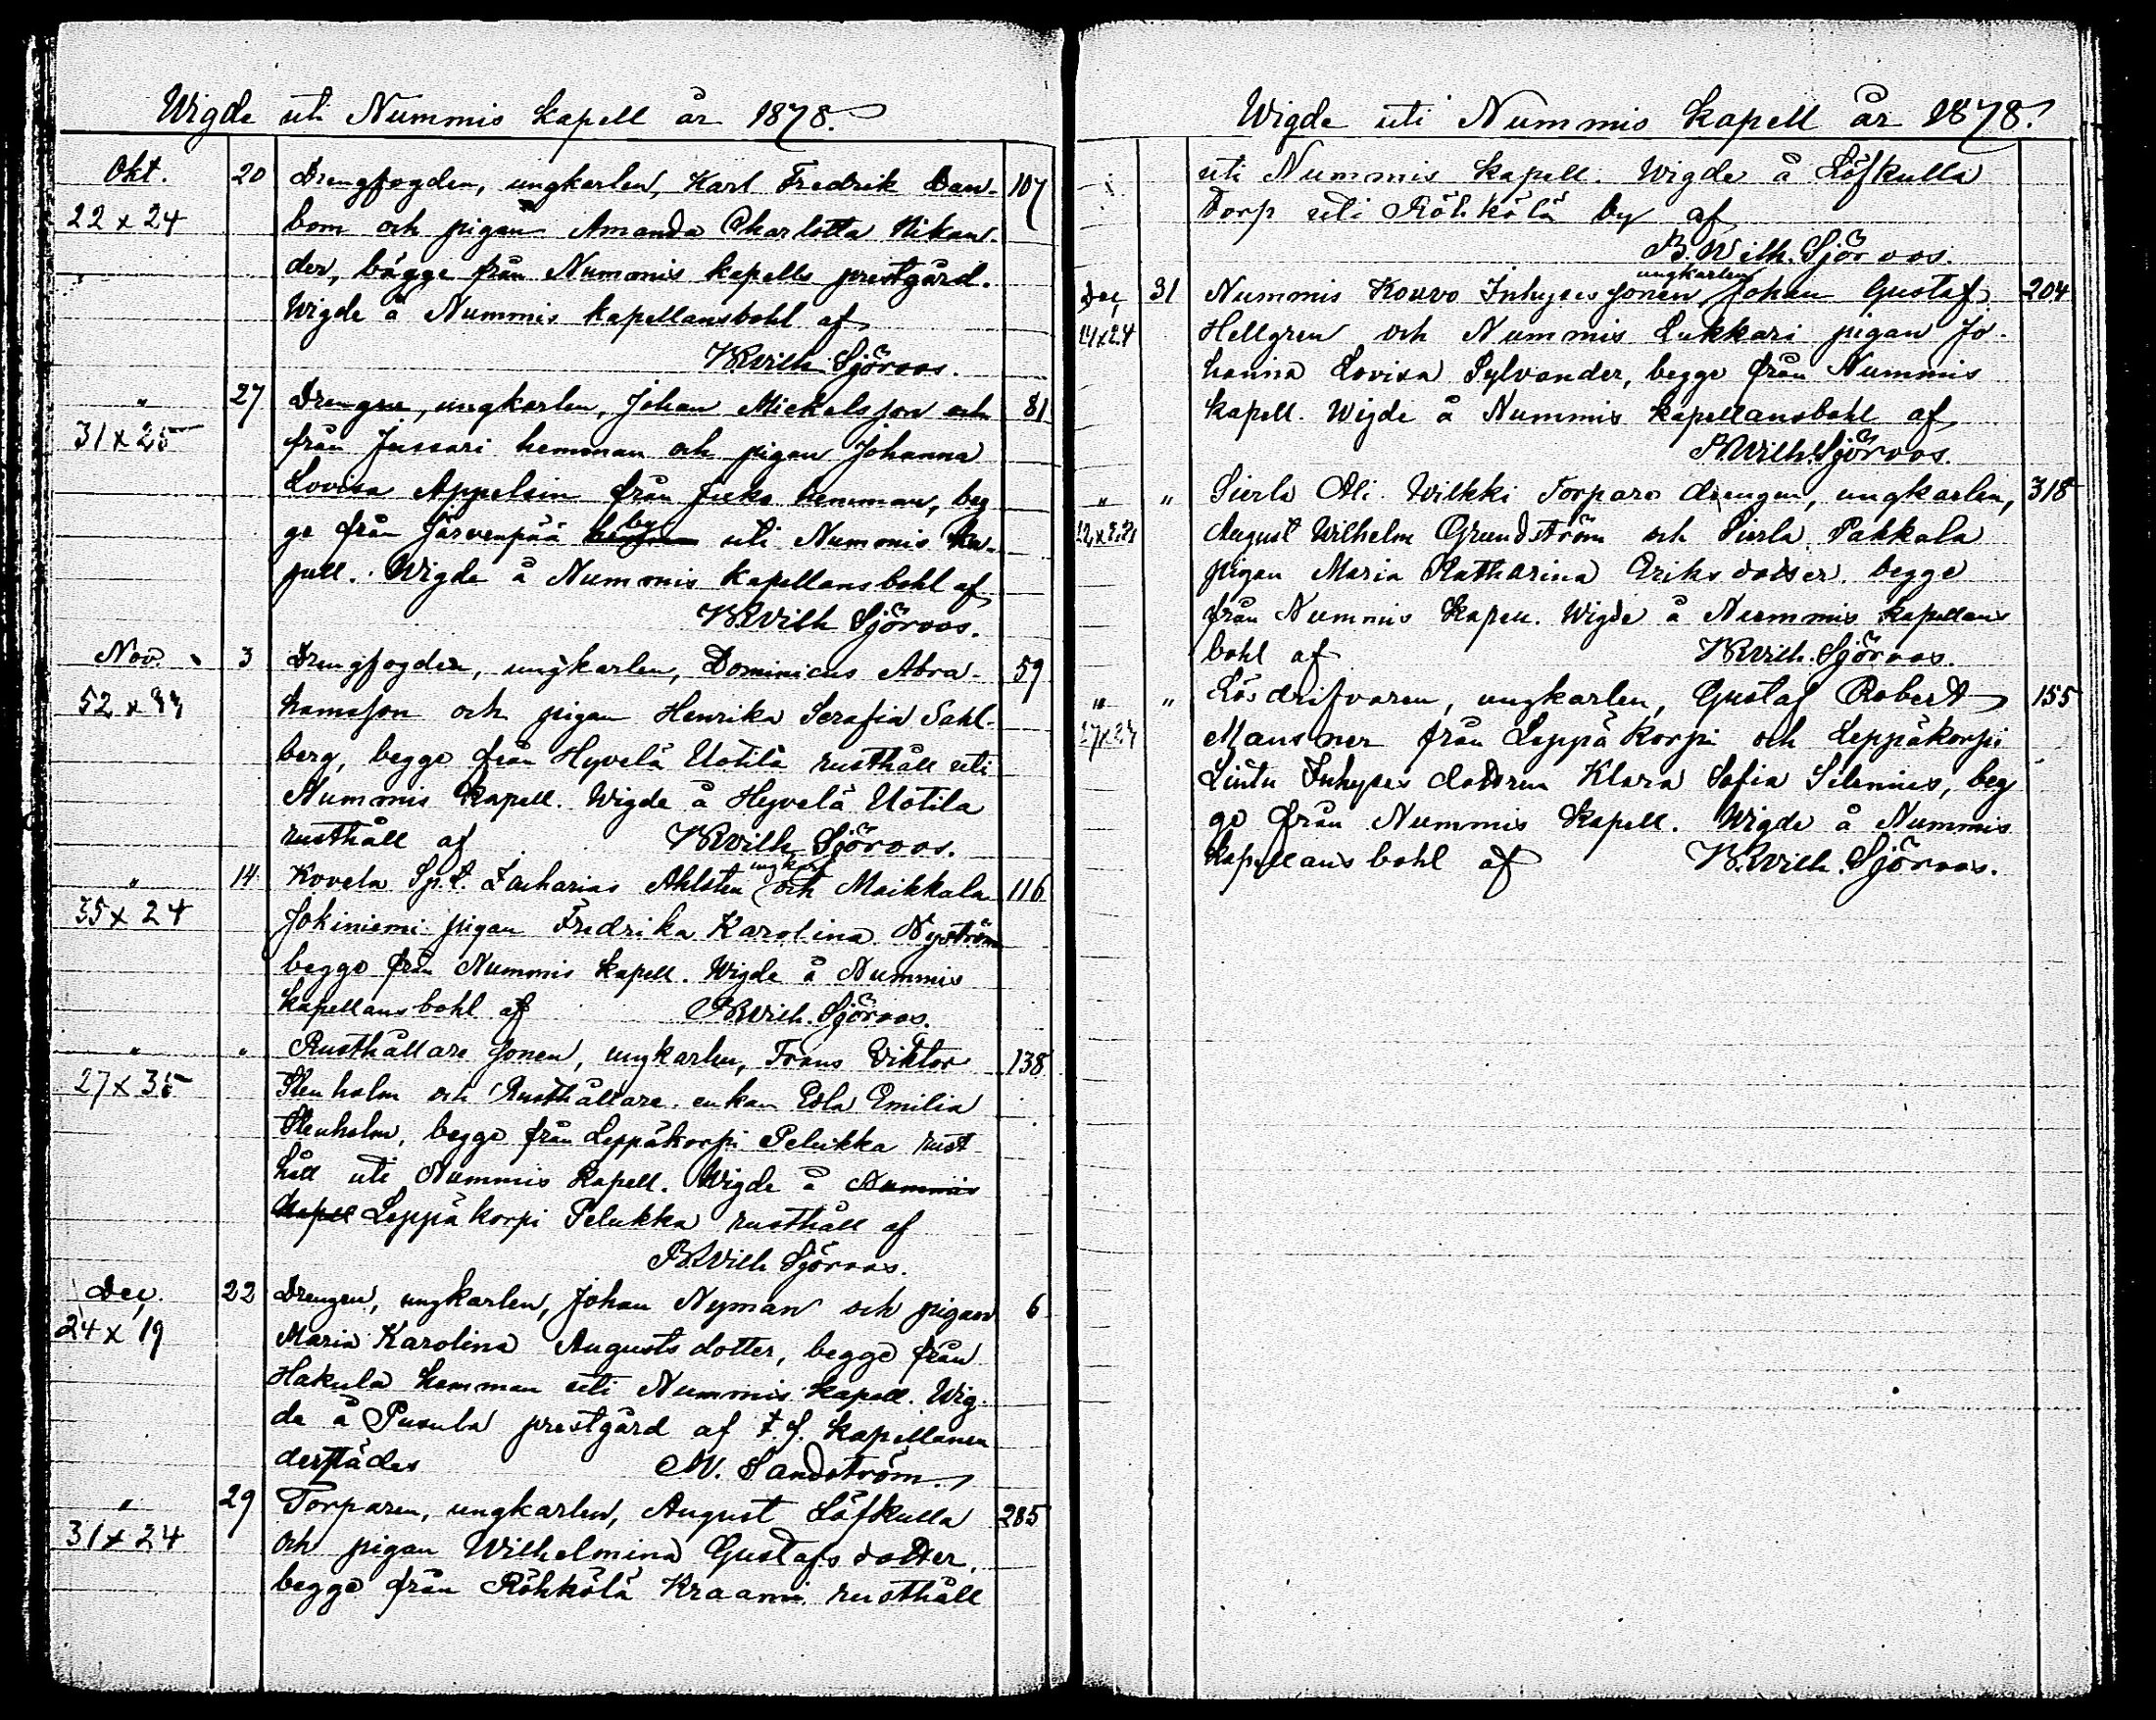 Wigde uti Nummis kapell år 1878.
Okt. 20 Drengfogden, ungkarlen, Karl Fredrik Dan- 107
22 x 24 bom och pigan Amanda Charlotta Nikan-
der, bägge från Nummis kapells prestgård.
Wigde å Nummis kapellansbohl af
Wilh. Sjöroos.
" 27 Drengen, ungkarlen, Johan Mickelsson och 81
31 x 25 från Jussari hemman och pigan Johanna
Lovisa Appelsin från Juka hemman, beg
ge från Järvenpää by uti Nummis ka-
pell. Wigde å Nummis Kapellansbohl af
Wilh Sjöroos.
Nov. 3 Drengfogden, ungkarlen, Dominicus Abra- 59
52 x hamsson och pigan Henrika Serafia Sahl-
berg, begge från Hyvelä Uotila rusthåll uti
Nummis Kapell. Wigde å Hyvelä Uotila
rusthåll af Wilh Sjöroos.
ungkar
" 14 Kovela Sp.t. Zacharias Ahlsten och Maikkala 116
35 x 24 Jokiniemi pigan Fredrika Karolina Nyström
begge från Nummis kapell. Wigde å Nummis
kapellansbohl af Wilh. Sjöroos.
" " Rusthållare sonen, ungkarlen, Frans Viktor 138
27 x 35 Stenholm och Rusthållare enkan Edla Emilia
Stenholm, begge från Leppäkorpi Pelukka rust
håll uti Nummis Kapell. Wigde å Nummis
Kapell Leppäkorpi Pelukka rusthåll af
Wilh Sjöroos.
Dec. 22 Drengen, ungkarlen, Johan Nyman och pigan 6
24 x 19 Maria Karolina Augusts dotter, begge från
Hakula hemman uti Nummis kapell. Wig-
de å Pusula prestgård af t.f. Kapellanen
derstädes Sandström.
" 29 Torparen, ungkarlen, August Löfkulla 285
31 x 24 och pigan Wilhelmina Gustafs dotter,
begge från Röhkölä Kraami rusthåll
Wigde uti Nummis kapell år 1878.
uti Nummis kapell. Wigde å Löfkulla
Torp uti Röhkölä by af
B. Wilh. Sjöroos.
ungkarlen
Dec. 31 Nummis Kouvo Inhyses sonen Johan Gustaf 204
24 Hellgren och Nummis Lukkari pigan Jo-
hanna Lovisa Sylvander, begge från Nummis
kapell. Wigde å Nummis kapellansbohl af
Wilh. Sjöroos.
" " Sierla Ali Wilkki Torpare drengen, ungkarlen, 318
August Wilhelm Grundström och Sierla Pakkala
pigan Maria Katharina Eriksdotter, begge
från Nummis Kapell. Wigde å Nummis kapellans
bohl af Wilh. Sjöroos.
" " Lösdrifvaren, ungkarlen, Gustaf Robert 155
Mansner från Leppäkorpi och Leppäkorpi
Lintu Inhyses dottren Klara Sofia Silenius, beg
ge från Nummis Kapell. Wigde å Nummis
Kapellansbohl af Wilh. Sjöroos.